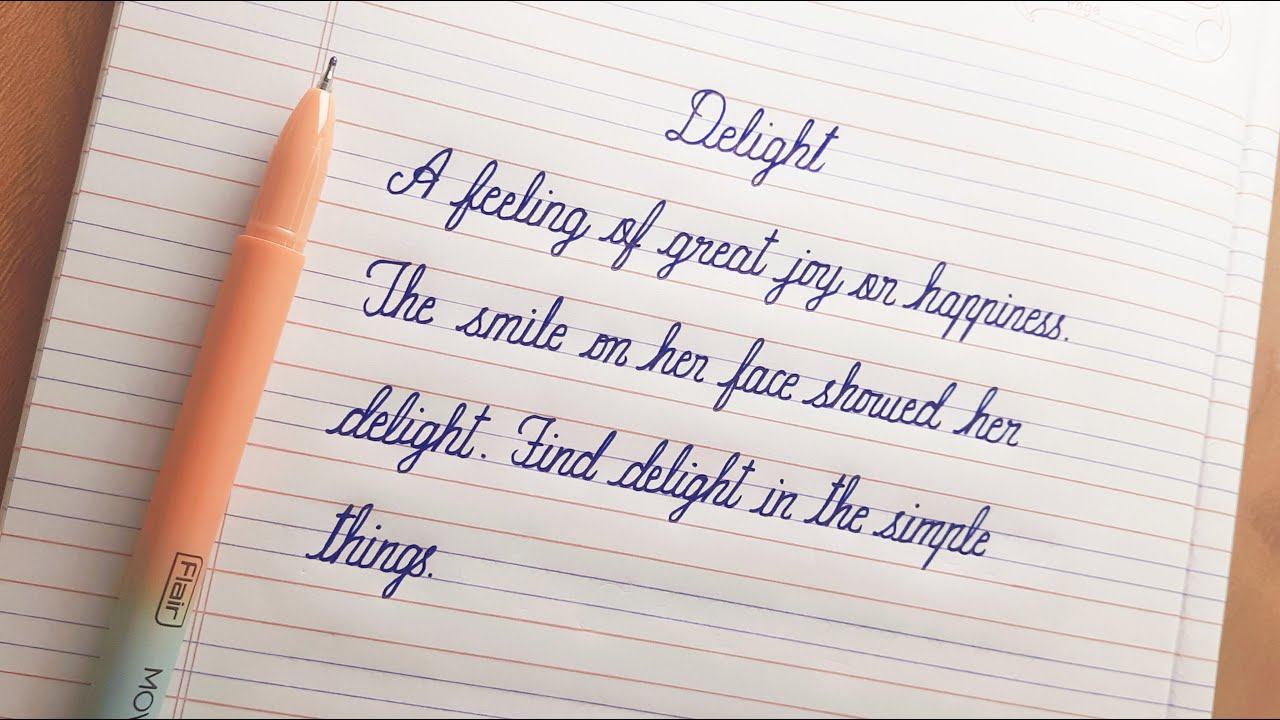 Page
Delight
A feeling of great joy or happiness.
The smile on her face showed her
delight. Find delight in the simple
things.
Flair